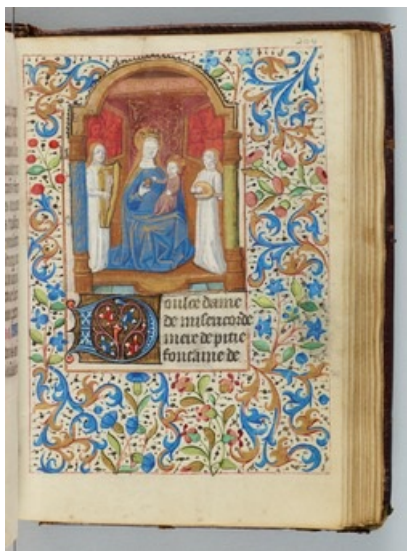 Doulce dame
de misericorde
mere de pitie
fontaine de